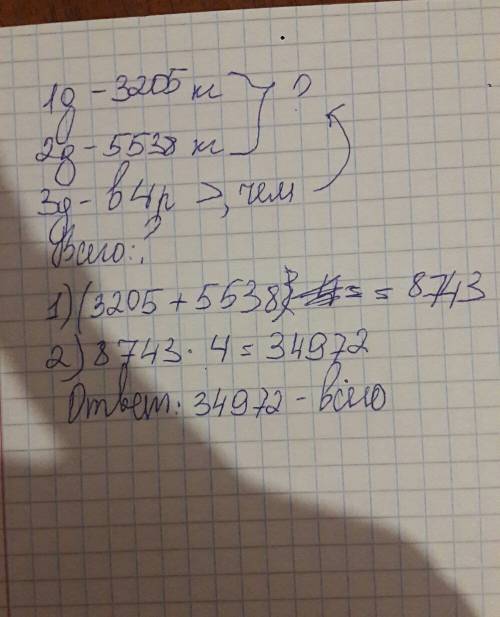 1д - 3205 кг } ?
2д - 5538 кг
3д - в 4 р >, чем
Всего: ?
1) (3205 + 5538) = = 8743
2) 8743 · 4 = 34972
Ответ: 34972 - всего